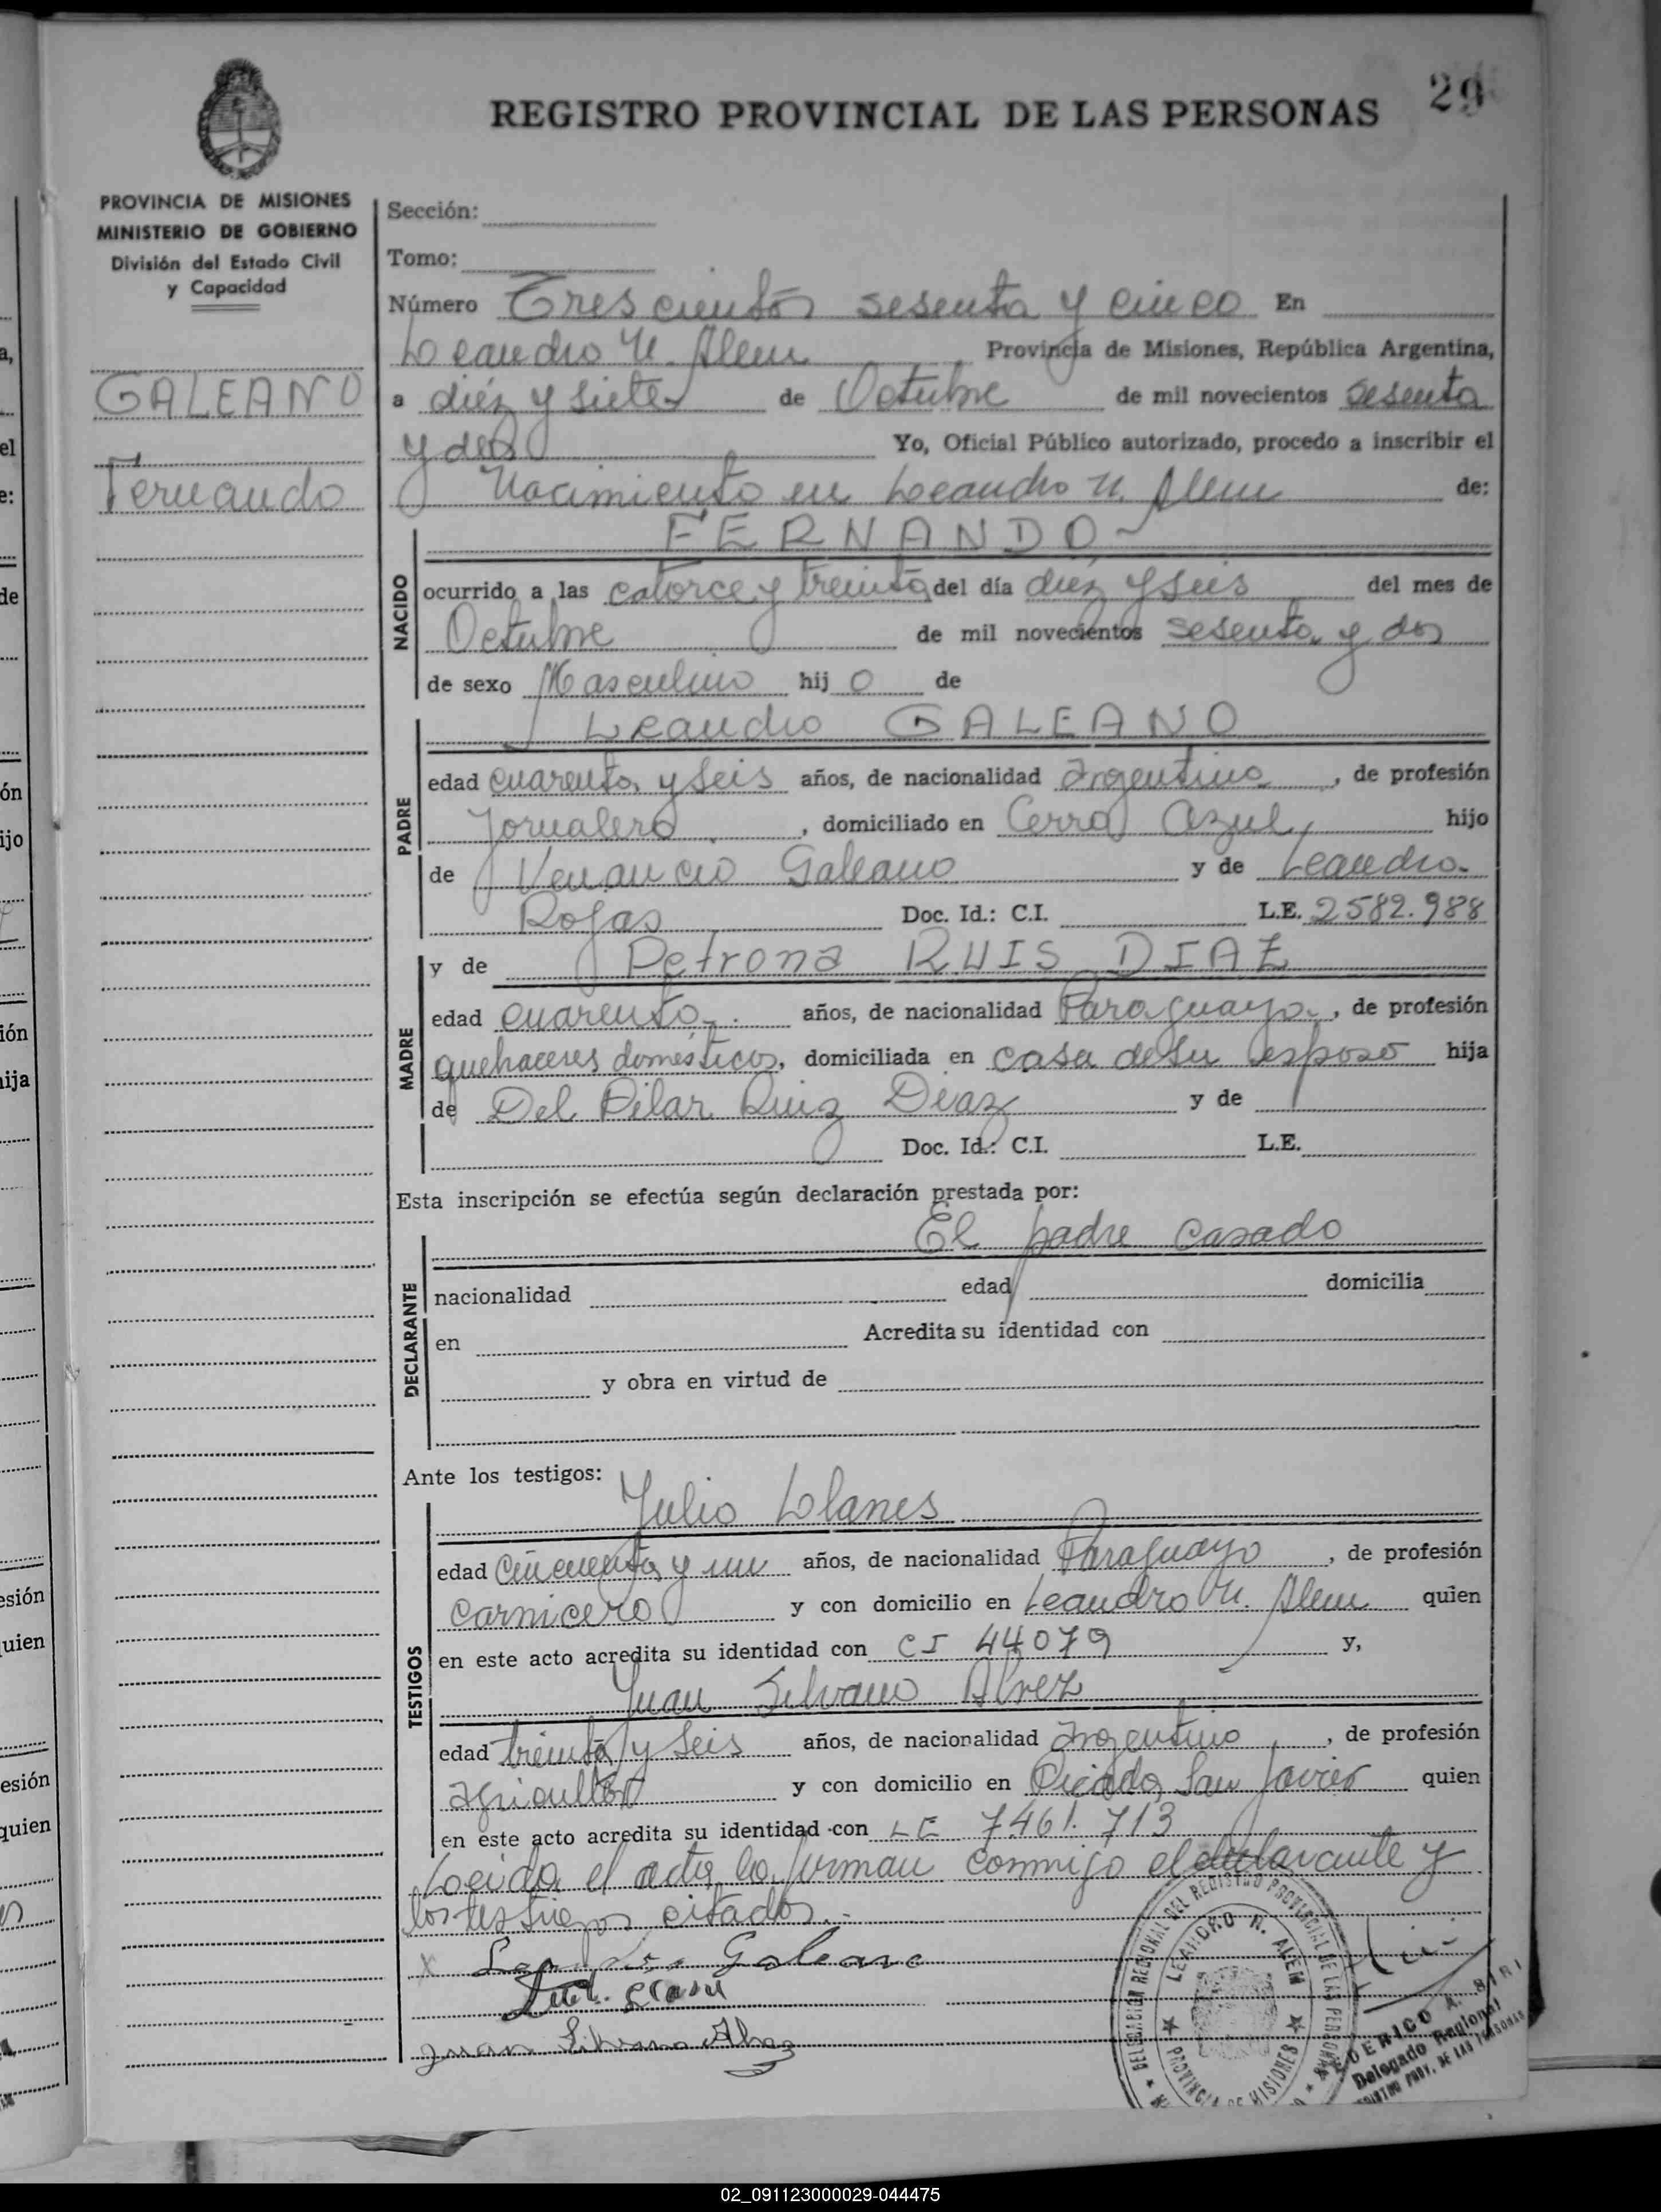 29
REGISTRO PROVINCIAL DE LAS PERSONAS
PROVINCIA DE MISIONES
MINISTERIO DE GOBIERNO
División del Estado Civil
y Capacidad
GALEANO
Fernando
Sección:
Tomo:
Número Trescientos sesenta y cinco En
Leandro N. Alem Provincia de Misiones, República Argentina,
a diéz y siete de Octubre de mil novecientos sesenta
y dos Yo, Oficial Público autorizado, procedo a inscribir el
Nacimiento en Leandro N. Alem de:
FERNANDO
NACIDO
ocurrido a las catorce y treinta del día diéz y seis del mes de
Octubre de mil novecientos sesenta y dos
de sexo Masculino hij o de
PADRE
Leandro GALEANO
edad cuarenta y seis años, de nacionalidad Argentina, de profesión
Jornalero, domiciliado en Cerro Azul, hijo
de Venancio Galeano y de Leandra
Rojas Doc. Id.: C.I. L.E. 2582.988
MADRE
y de Petrona RUIS DIAZ
edad cuarenta años, de nacionalidad Paraguaya, de profesión
quehaceres domésticos, domiciliada en casa de su esposo hija
de Del Pilar Ruiz Diaz y de
Doc. Id.: C.I. L.E.
Esta inscripción se efectúa según declaración prestada por:
DECLARANTE
El padre casado
nacionalidad edad domicilia
en Acredita su identidad con
y obra en virtud de
Ante los testigos:
TESTIGOS
Julio Llanes
edad Cincuenta y un años, de nacionalidad Paraguayo, de profesión
carnicero y con domicilio en Leandro N. Alem quien
en este acto acredita su identidad con CI 44079 y,
Juan Silvano Alvez
edad treinta y seis años, de nacionalidad Argentino, de profesión
agricultor y con domicilio en Picada San Javier quien
en este acto acredita su identidad con LE 7461.713
Leida el acta la firman conmigo el declarante y
los testigos citados.-
x Galeano
Juan Silvano Alvez
DELEGACION REGIONAL DEL REGISTRO PROVINCIAL DE LAS PERSONAS
LEANDRO N. ALEM
PROVINCIA DE MISIONES
FEDERICO A. SIRI
Delegado Regional
REGISTRO PROV. DE LAS PERSONAS
02_091123000029-044475